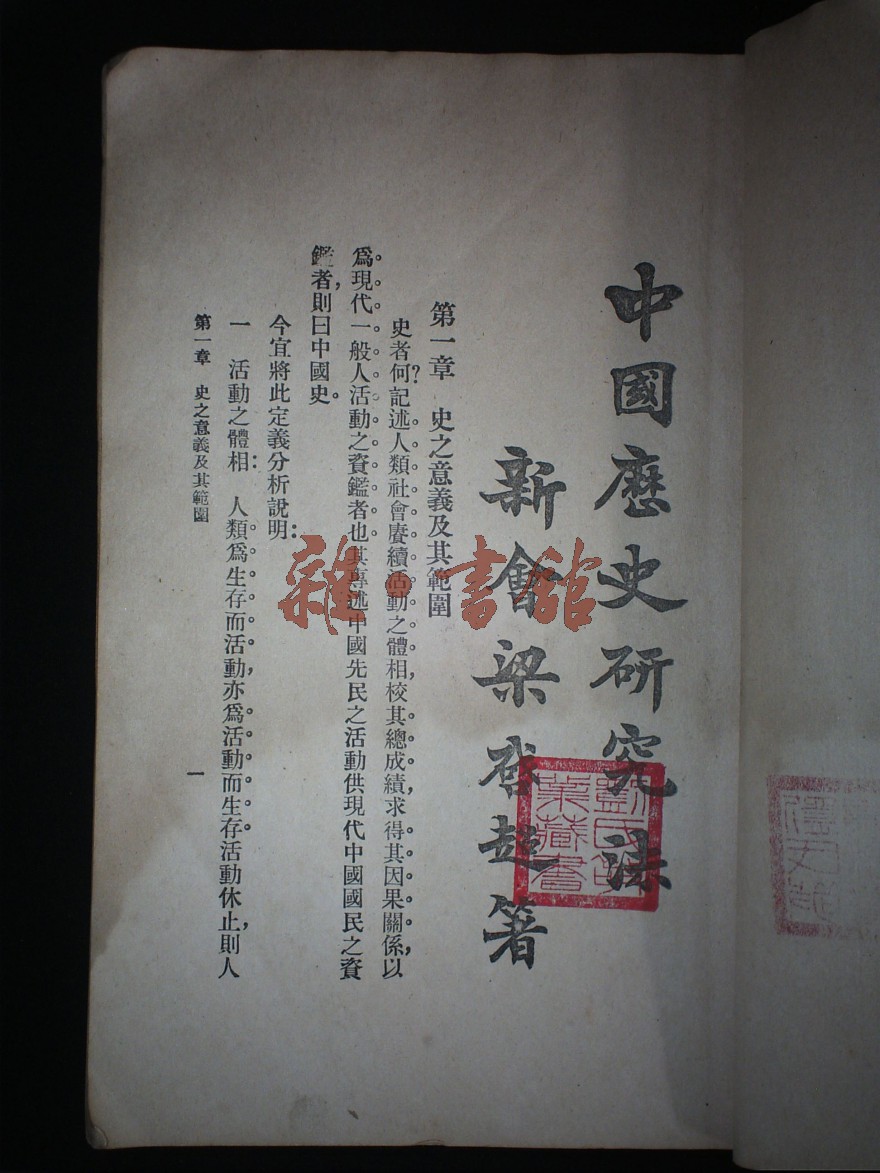 中國歷史研究法
新會梁啓超著
第一章　史之意義及其範圍
史者何？記述人類社會賡續活動之體相，校其總成績，求得其因果關係，以
爲現代一般人活動之資鑑者也。其專述中國先民之活動供現代中國國民之資
鑑者，則曰中國史。
今宜將此定義分析說明：
一　活動之體相：　人類爲生存而活動，亦爲活動而生存。活動休止，則人
第一章　史之意義及其範圍
一
雜·書館
業藏書